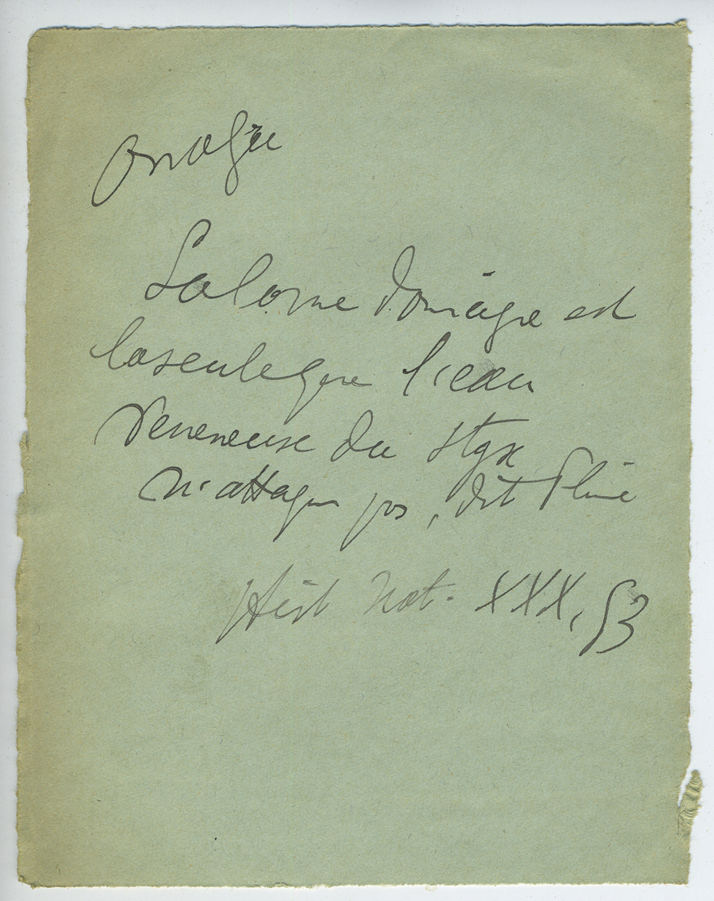 Onagre
La corne d'onagre est
la seule que l'eau
veneneuse du Styx
n'attaque pas, dit Pline
Hist Nat. XXX, 53